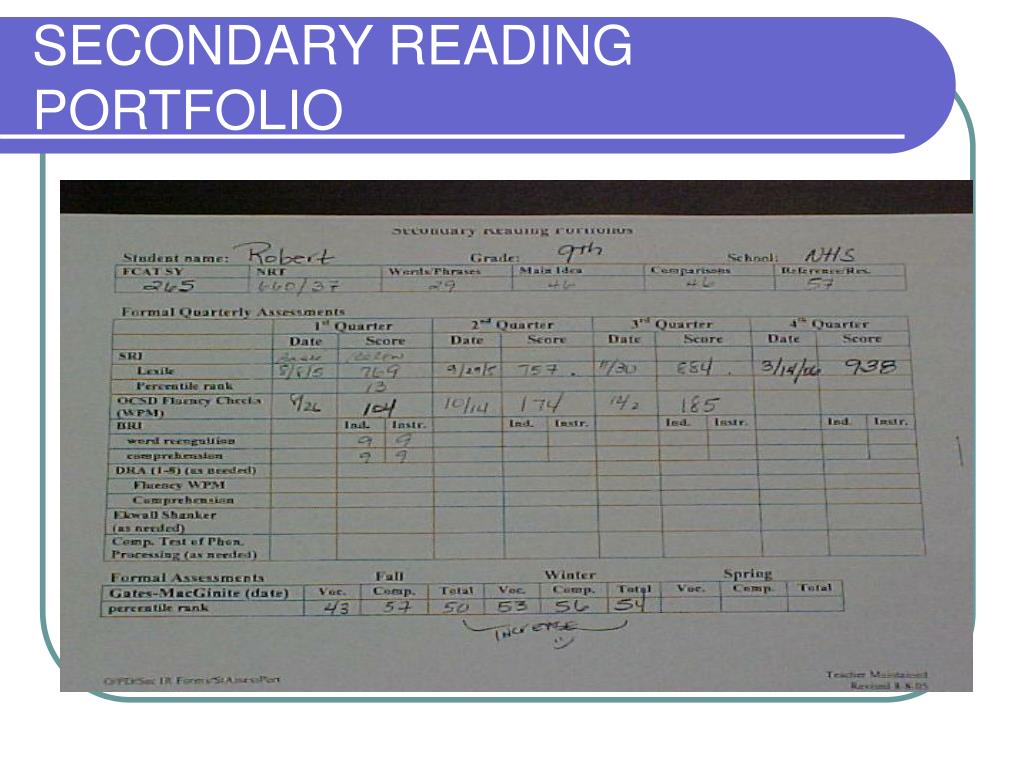 SECONDARY READING
PORTFOLIO
Secondary Reading Portfolios
Student name: Robert Grade: 9th School: NHS
FCAT SY NRT Words/Phrases Main Idea Comparisons Reference/Res.
265 660/37 29 46 46 57
Formal Quarterly Assessments
1st Quarter 2nd Quarter 3rd Quarter 4th Quarter
Date Score Date Score Date Score Date Score
SRI
Lexile 8/8/5 769 9/29/5 757 . 11/30 884 . 3/14/06 938
Percentile rank 13
OCSD Fluency Checks 8/26 104 10/14 174 12/2 185
(WPM)
BRI Ind. Instr. Ind. Instr. Ind. Instr. Ind. Instr.
word recognition 9 9
comprehension 9 9
DRA (1-8) (as needed)
Fluency WPM
Comprehension
Ekwall Shanker
(as needed)
Comp. Test of Phon.
Processing (as needed)
Formal Assessments Fall Winter Spring
Gates-MacGinite (date) Voc. Comp. Total Voc. Comp. Total Voc. Comp. Total
percentile rank 43 57 50 53 56 54
INCREASE
Teacher Maintained
Revised 8-8-05